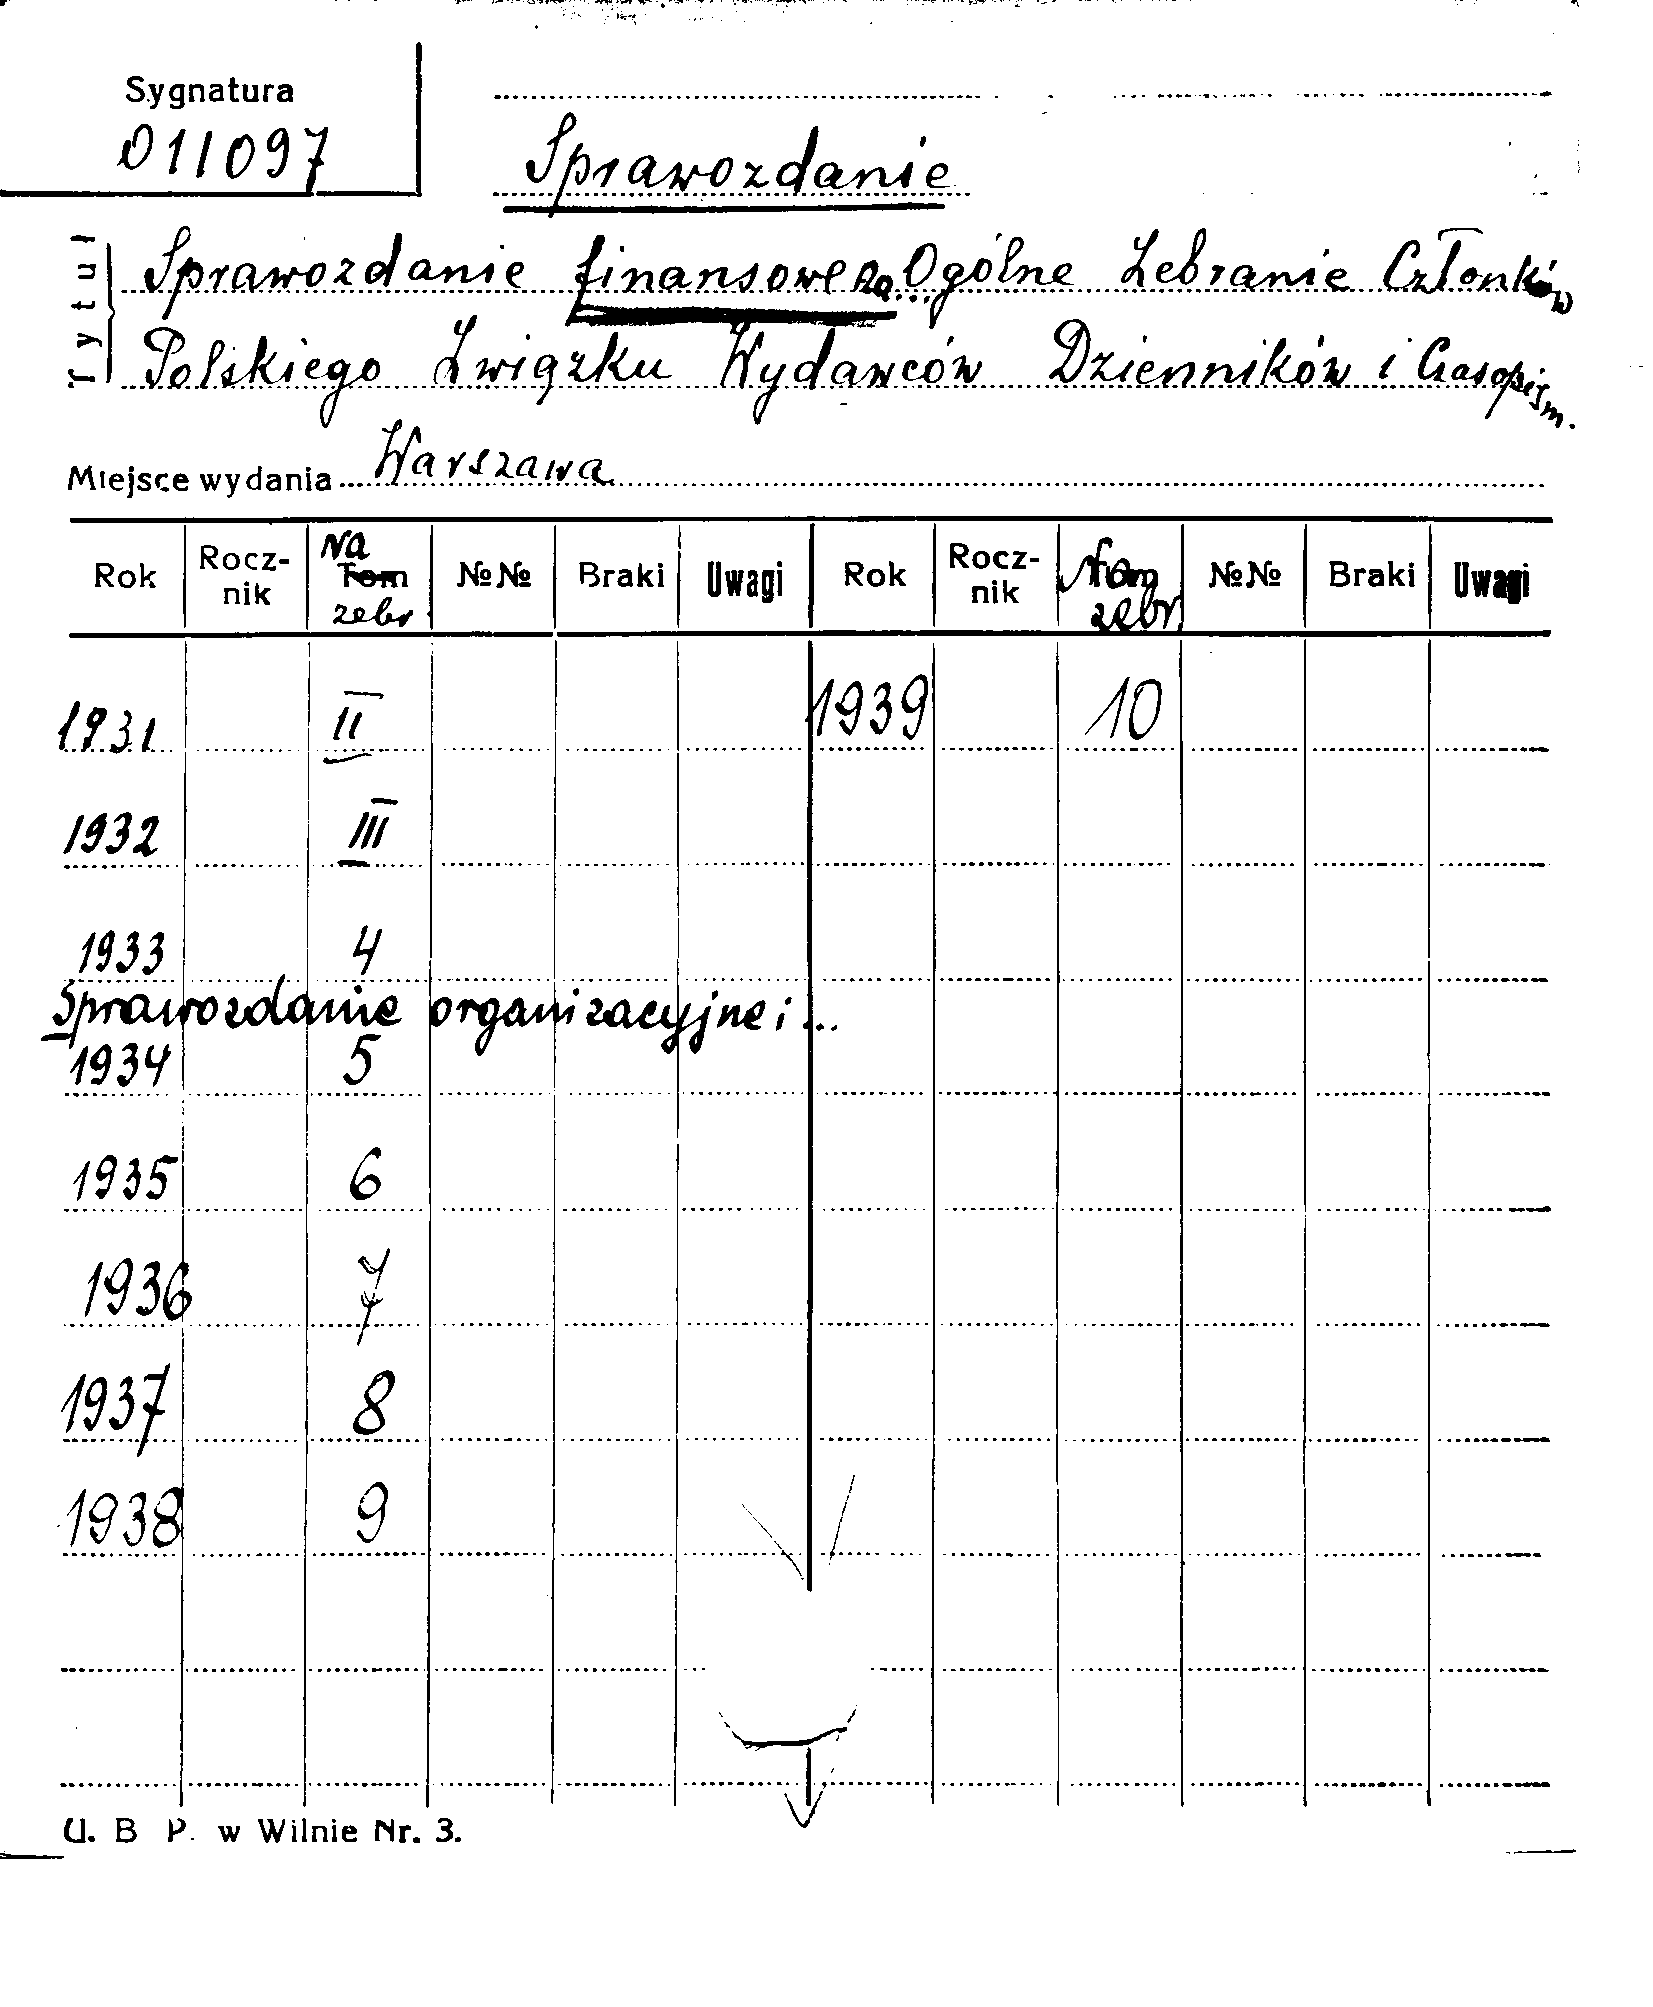 Sygnatura
011097
Sprawozdanie
Tytuł
Sprawozdanie finansowe na Ogólne Zebranie Członków
Polskiego Związku Wydawców Dzienników i Czasopism.
Miejsce wydania Warszawa
Rok Rocz-nik Na Tom zebr №№ Braki Uwagi Rok Rocz-nik Tom zebr. №№ Braki Uwagi
1931 II 1939 10
1932 III
1933 4
Sprawozdanie organizacyjne i...
1934 5
1935 6
1936 7
1937 8
1938 9
U. B P. w Wilnie Nr. 3.